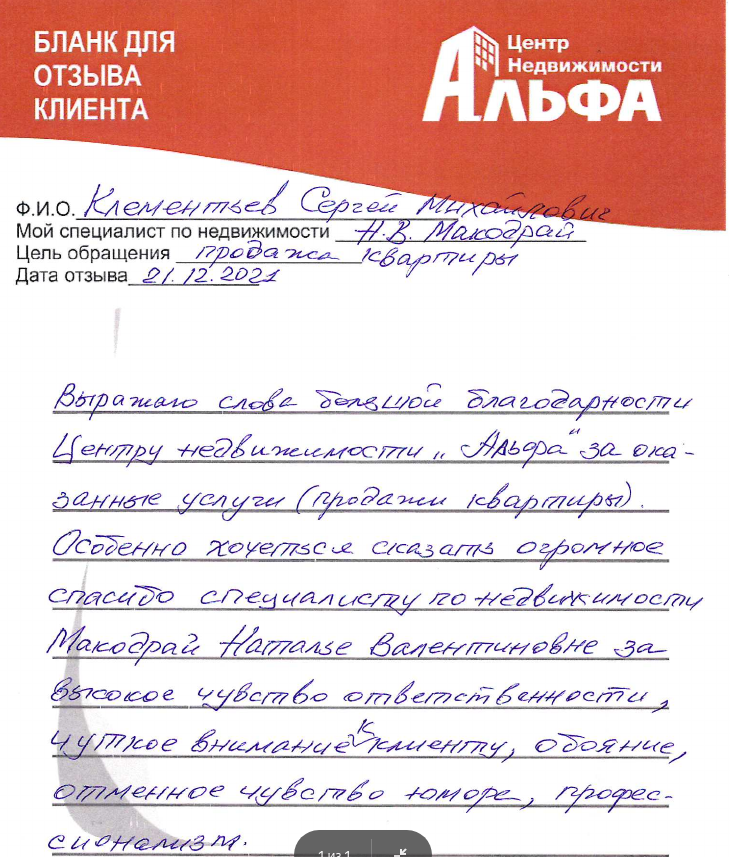 БЛАНК ДЛЯ
ОТЗЫВА
КЛИЕНТА
Центр
Недвижимости
АЛЬФА
Ф.И.О. Клементьев Сергей Михайлович
Мой специалист по недвижимости Н.В. Макодрай
Цель обращения продажа квартиры
Дата отзыва 21.12.2021
Выражаю слова большой благодарности
Центру недвижимости „Альфа" за ока-
занные услуги (продажи квартиры).
Особенно хочеться сказать огромное
спасибо специалисту по недвижимости
Макодрай Наталье Валентиновне за
высокое чувство ответственности,
чуткое внимание к клиенту, обояние,
отменное чувство юмора, професс-
сионализм.
1 из 1